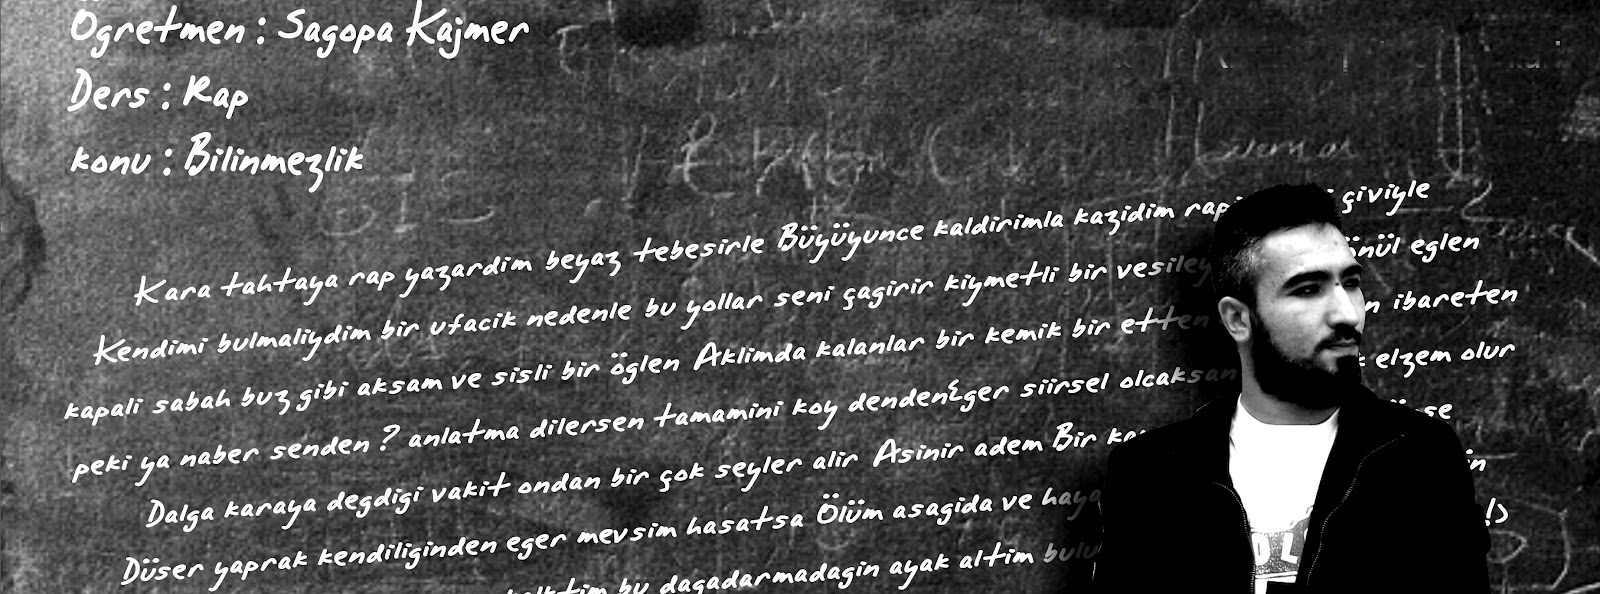 Ögretmen : Sagopa Kajmer
Ders : Rap
konu : Bilinmezlik
Kara tahtaya rap yazardim beyaz tebesirle Büyüyunce kaldirimla kazidim çiviyle
Kendimi bulmaliydim bir ufacik nedenle bu yollar seni çagirir kiymetli bir eglen
kapali sabah buz gibi aksam ve sisli bir öglen Aklimda kalanlar bir kemik bir etten ibareten
peki ya naber senden ? anlatma dilersen tamamini koy denden Eger siirsel olcaksan elzem olur
Dalga karaya degdigi vakit ondan bir çok seyler alir Asinir adem Bir
Düser yaprak kendiliginden eger mevsim hasatsa Ölüm asagida ve
bu dagadarmadagin ayak altim